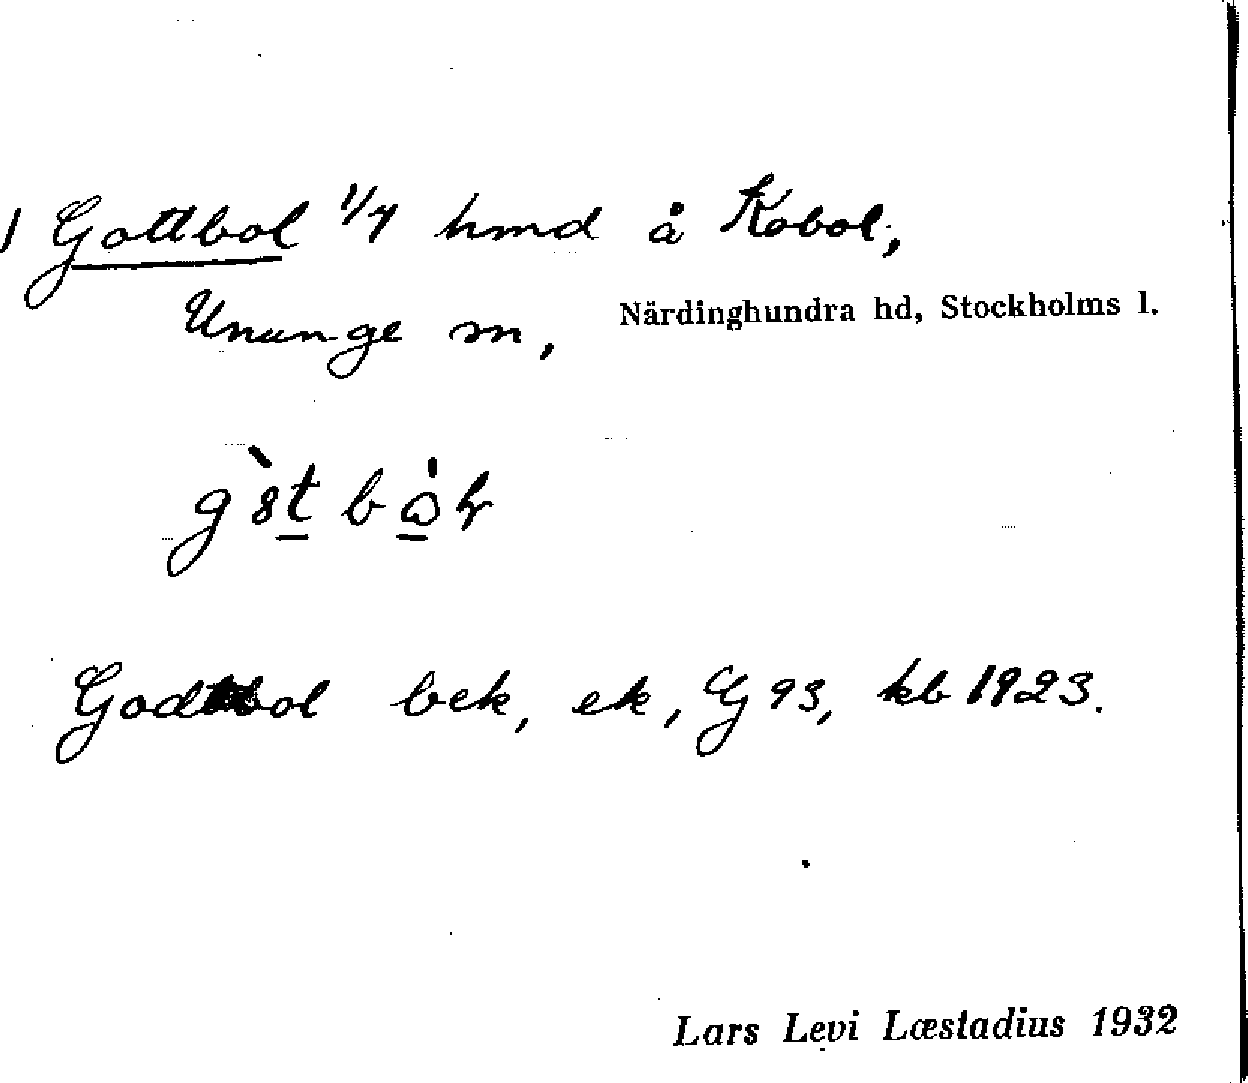 Gottbol 1/4 hmd å Kobol;
Ununge sn, Närdinghundra hd, Stockholms l.
Godtbol bek, ek, Gj 93, kb 1923.
Lars Levi Læstadius 1932